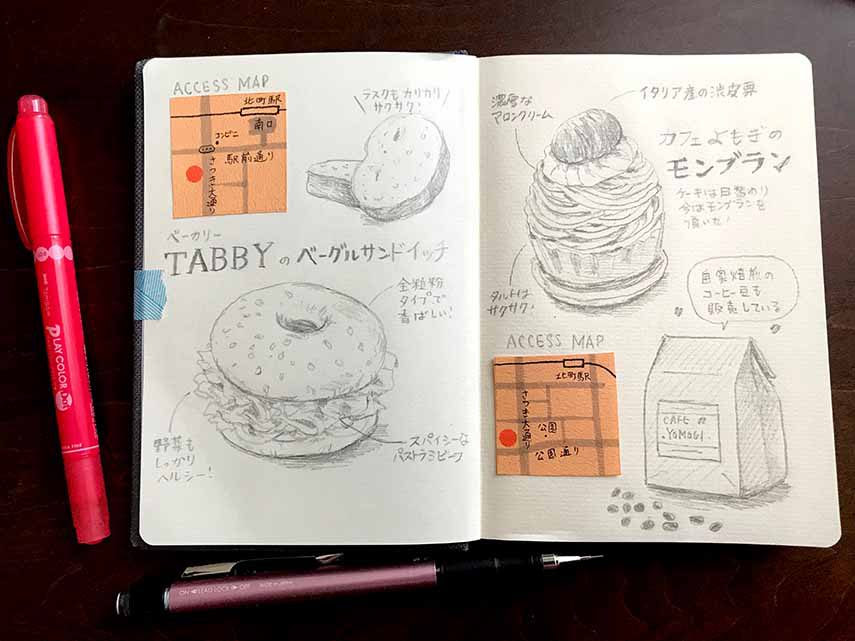 ACCESS MAP
北町駅
南口
コンビニ
駅前通り
さつき大通り
ラスクも カリカリ
サクサク!
ベーカリー
TABBY の ベーグルサンドイッチ
全粒粉
タイプで
香ばしい!
野菜も
しっかり
ヘルシー!
スパイシーな
パストラミビーフ
濃厚な
マロンクリーム
イタリア産の渋皮栗
カフェよもぎの
モンブラン
ケーキは日替わり
今日はモンブランを
頂いた!
タルトは
サクサク!
自家焙煎の
コーヒー豆も
販売している
ACCESS MAP
北町駅
さつき大通り
公園
公園通り
CAFE
YOMOGI
PLAY COLOR
ON LEAD LOCK OFF